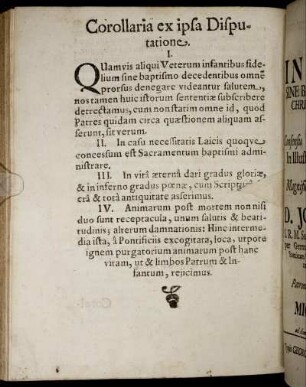 Corollaria ex ipsa Dispu-
tatione.
I.
QUamvis aliqui Veterum infantibus fide-
lium sine baptismo decedentibus omnē
prorsus denegare videantur salutem,
nos tamen huic istorum sententiæ subscribere
detrectamus, cum non statim omne id, quod
Patres quidam circa quæstionem aliquam as-
serunt, sit verum.
II. In casu necessitatis Laicis quoqve
concessum est Sacramentum baptismi admini-
strare.
III. In vitâ æternâ dari gradus gloriæ,
& in inferno gradus pœnæ, cum Scripturâ
& totâ antiquitate asserimus.
IV. Animarum post mortem non nisi
duo sunt receptacula, unum salutis & beati-
tudinis; alterum damnationis: Hinc interme-
dia ista, à Pontificiis excogitata, loca, utpote
ignem purgatorium animarum post hanc
vitam, ut & limbos Patrum & In-
fantum, rejicimus.
IN
SINE B
CHR
In Illust
Magnifi
D. JO
MIC